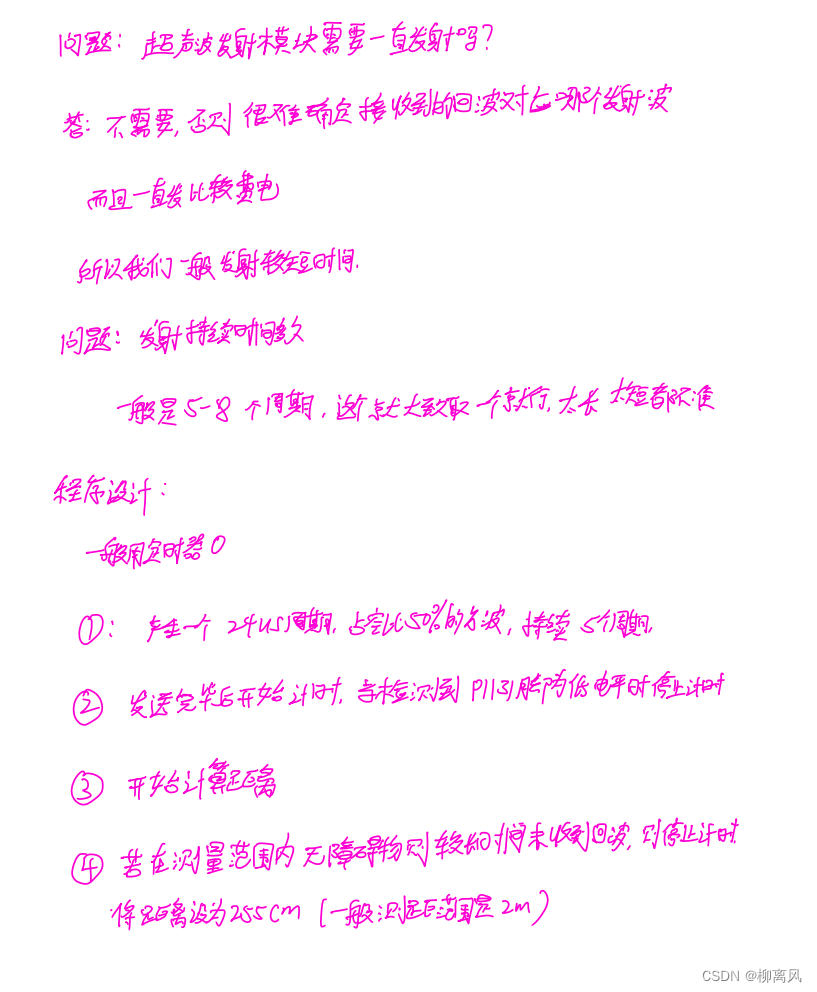 问题：超声波发射模块需要一直发射吗？
答：不需要，否则 很难确定接收到的回波对应哪个发射波
而且一直发比较费电
所以我们一般发射较短时间.
问题：发射持续时间多久
一般是5-8个周期，这个就大致取一个就行，太长太短都不准
程序设计：
一般用定时器0
①：产生一个 24us周期，占空比50%的方波，持续 5个周期.
② 发送完毕后开始计时，当检测到 P1131脚为低电平时停止计时
③ 开始计算距离
④ 若在测量范围内 无障碍物则较长时间未收到回波，则停止计时.
将距离设为255cm（一般测距范围是2m）
CSDN @柳离风